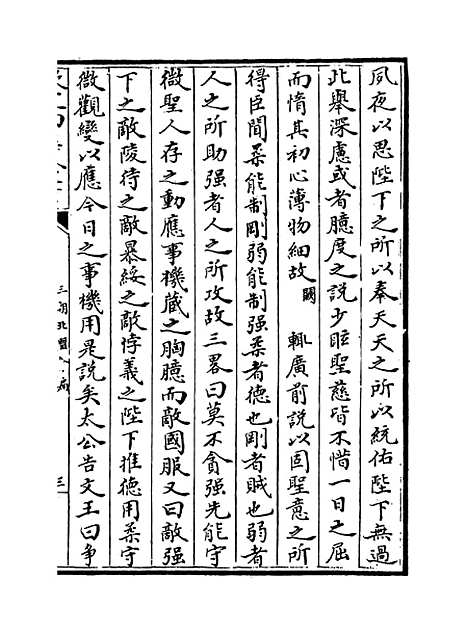 夙夜以思陛下之所以奉天天之所以統佑陛下無過
此舉深慮或者臆度之說少眩聖慈皆不惜一日之屈
而惰其初心薄物細故闕輒廣前說以固聖意之所
得臣聞柔能制剛弱能制强柔者德也剛者賊也弱者
人之所助强者人之所攻故三畧曰莫不貪强先能守
微聖人存之動應事機藏之胸臆而敵國服又曰敵强
下之敵陵待之敵暴綏之敵悖義之陛下推德用柔守
微觀變以應今日之事機用是說矣太公告文王曰争
三朝北盟
三